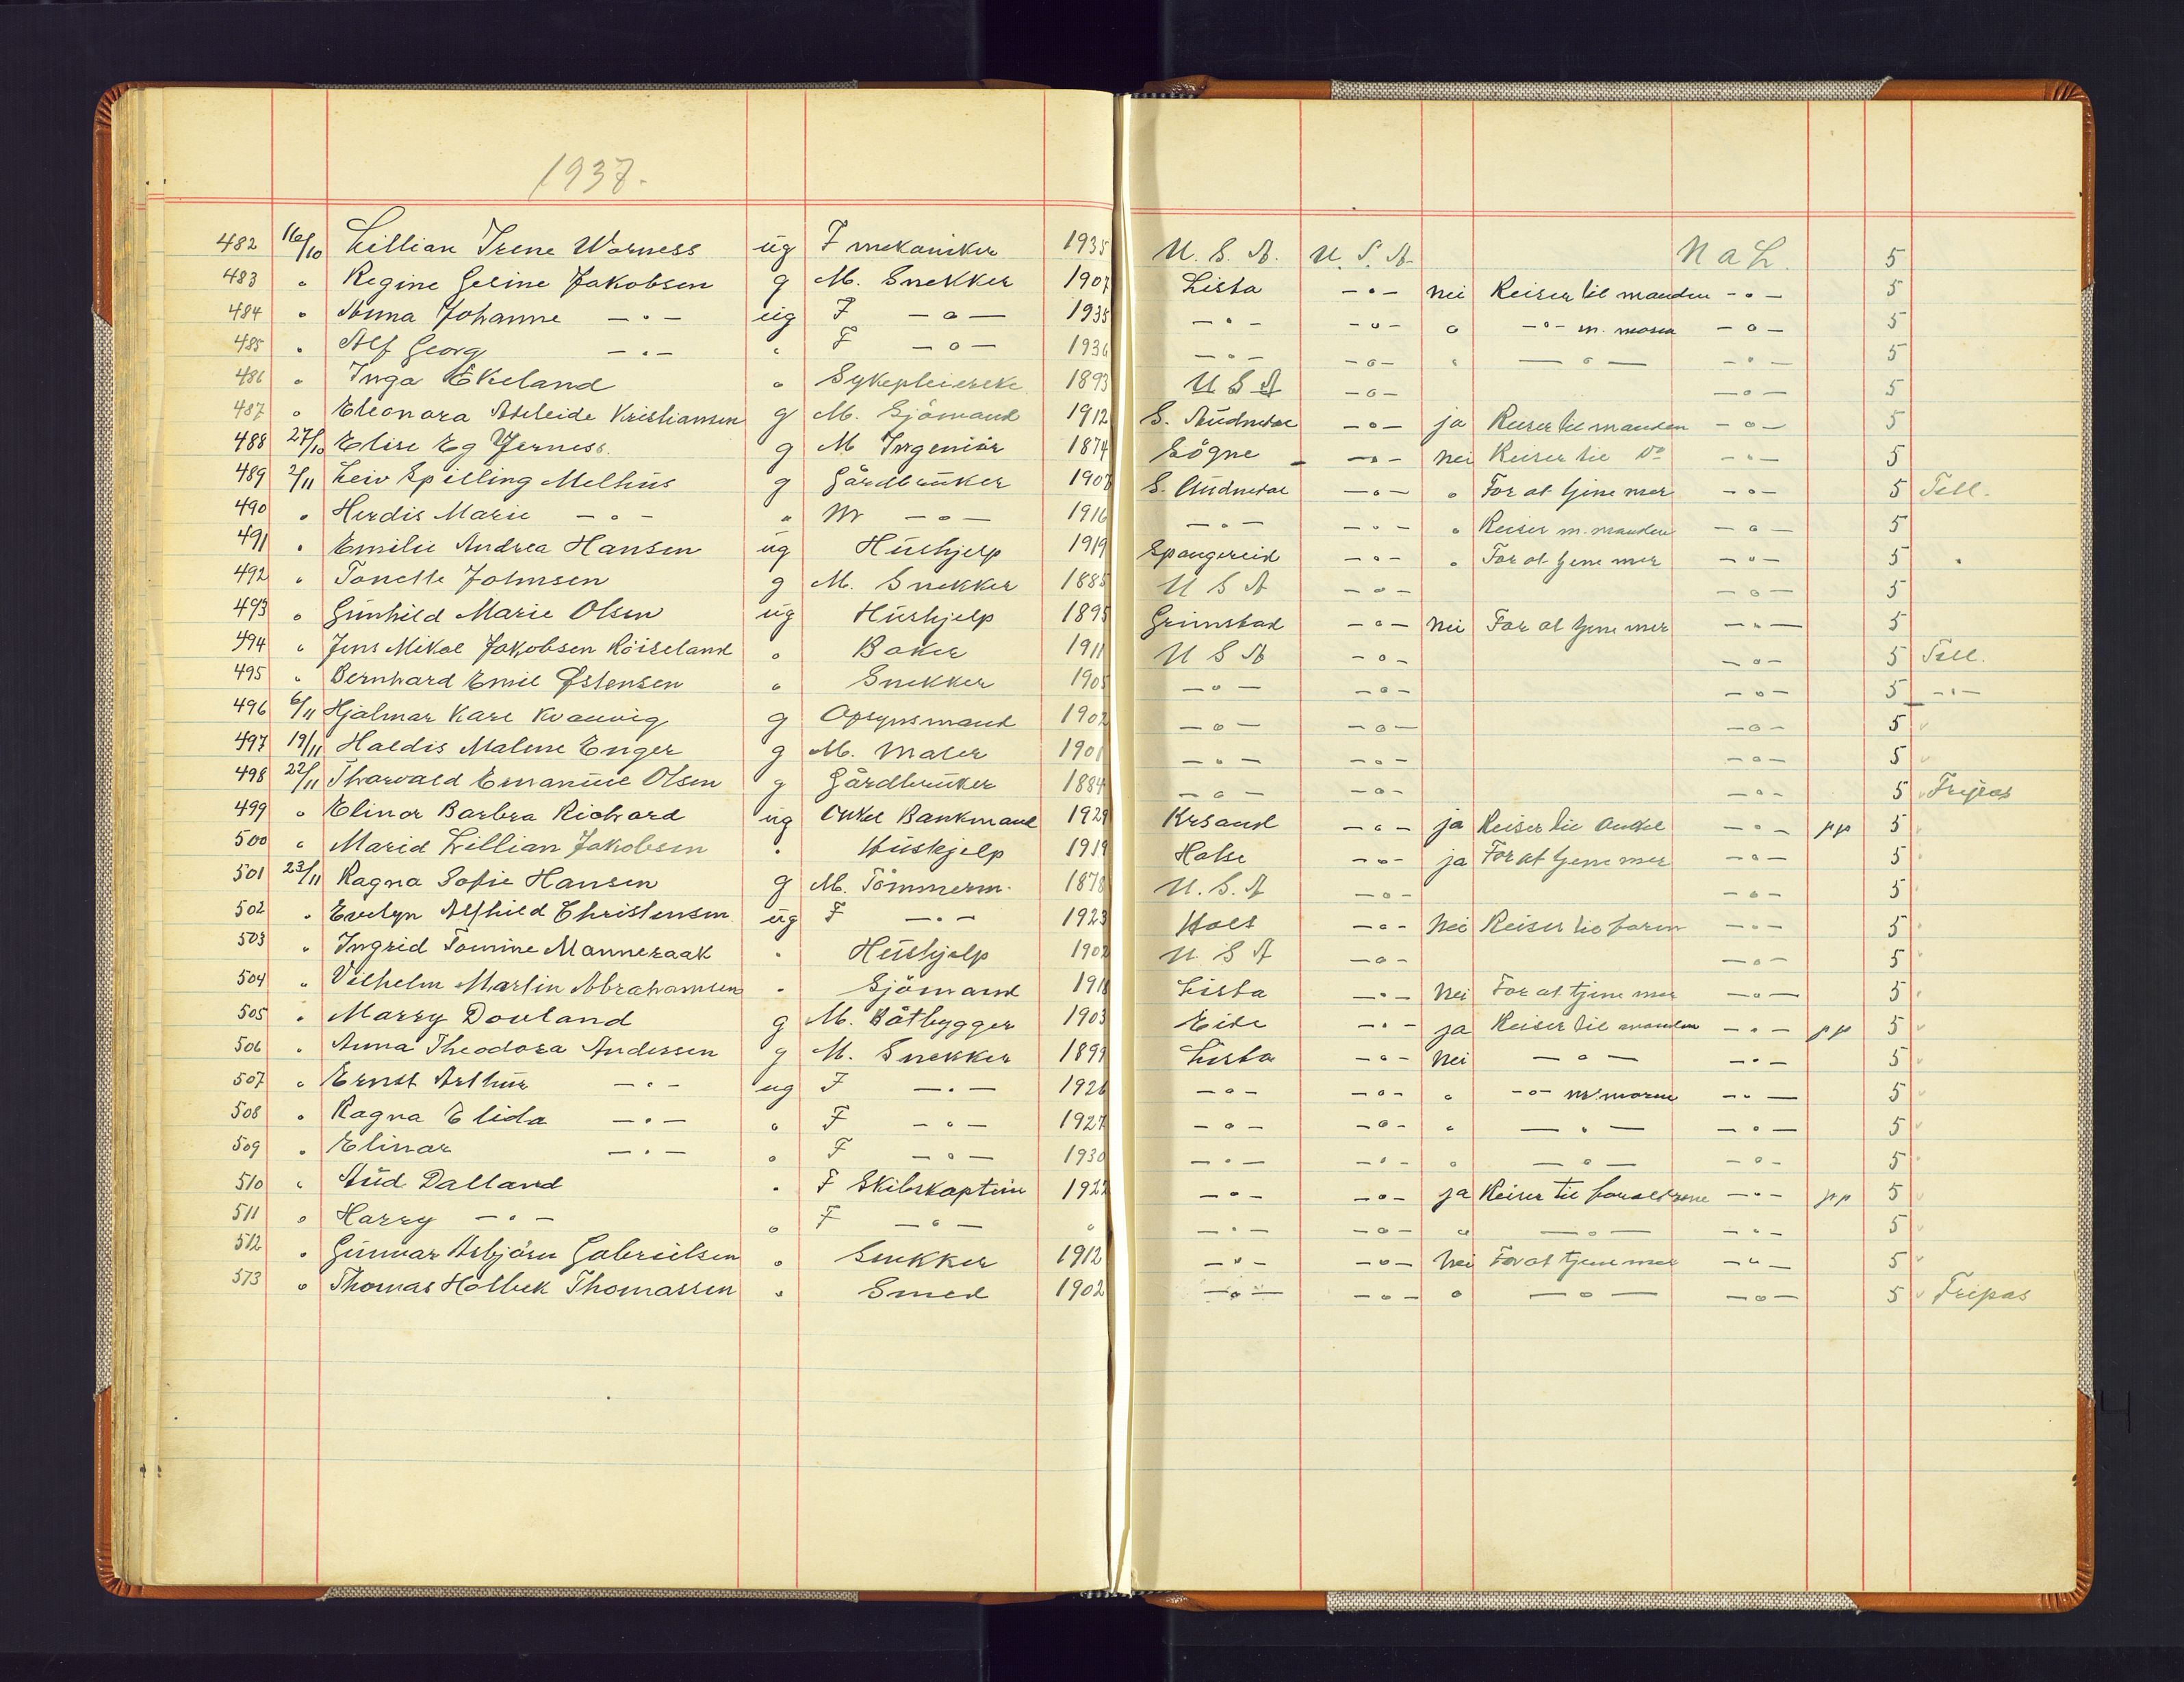 1937.
482 16/10 Lillian Irene Worness ug F mekaniker 1935 U.S.A. U.S.A. N a L. 5
483 " Regine Geline Jakobsen g M. Snekker 1907 Lista -"- Nei Reiser til manden -"- 5
484 " Anna Johanne -"- ug F -"- 1935 -"- -"- " -"- m. moren -"- 5
485 " Alf Georg -"- " F -"- 1936 -"- -"- " -"- -"- 5
486 " Inga Ekeland " Sykepleierske 1893 U S A -"- -"- 5
487 " Eleonora Adeleide Kristiansen g M. Sjömand 1912 S. Audnedal -"- ja Reiser til manden -"- 5
488 27/10 Elise Eg Jerness. g M Ingeniör 1874 Sögne -"- Nei Reiser til Do -"- 5
489 2/11 Leiv Spilling Melhus g Gårdbruker 1907 S. Audnedal -"- " For at tjene mer -"- 5 Sell.
490 " Herdis Marie -"- " M -"- 1916 -"- -"- " Reiser m. manden -"- 5
491 " Emilie Andrea Hansen ug Hushjelp 1919 Spangereid -"- " For at tjene mer -"- 5 "
492 " Tonette Johnsen g M. Snekker 1885 U S A -"- -"- 5
493 " Gunhild Marie Olsen ug Hushjelp 1895 Grimstad -"- Nei For at tjene mer -"- 5
494 " Jens Mikal Jakobsen Röiseland " Baker 1911 U S A -"- -"- 5 Sell.
495 " Bernhard Emil Østensen " Snekker 1905 -"- -"- -"- 5 -"-
496 6/11 Hjalmar Kare Kvanvig g Opsynsmand 1902 -"- -"- -"- 5
497 19/11 Haldis Malene Enger g M. Maler 1901 -"- -"- -"- 5
498 22/11 Tharvald Emanuel Olsen g Gårdbruker 1884 -"- -"- -"- 5 Fripas
499 " Elinor Barbra Richard ug Onkel Bankmand 1929 Krsand -"- ja Reiser til Onkel -"- pp 5
500 " Marid Lillian Jakobsen " Hushjelp 1919 Halse -"- ja For at tjene mer -"- 5
501 23/11 Ragna Sofie Hansen g M. Tömmerm. 1878 U.S.A -"- -"- 5
502 " Evelyn Alfhild Christensen ug F -"- 1923 Holt -"- Nei Reiser til faren -"- 5
503 " Ingrid Tomine Manneraak " Hushjelp 1902 U S A -"- -"- 5
504 " Vilhelm Martin Abrahamsen " Sjömand 1918 Lista -"- Nei For at tjene mer -"- 5
505 " Marry Douland g M. Båtbygger 1903 Eide -"- ja Reiser til manden -"- pp 5
506 " Anna Theodora Anderssen g M. Snekker 1899 Lista -"- Nei -"- -"- 5
507 " Ernst Arthur -"- ug F -"- 1926 -"- -"- " -"- m. moren -"- 5
508 " Ragna Elida -"- " F -"- 1927 -"- -"- " -"- -"- 5
509 " Elinar -"- " F -"- 1930 -"- -"- " -"- -"- 5
510 " Aud Dalland " F Skibskaptein 1922 -"- -"- ja Reiser til foreldrene -"- pp 5
511 " Harry -"- " F -"- " -"- -"- " -"- -"- 5
512 " Gunnar Asbjörn Gabrielsen " Snekker 1912 -"- -"- Nei For at tjene mer -"- 5
513 " Thomas Holbek Thomassen " Smed 1902 -"- -"- " -"- -"- 5 Fripas